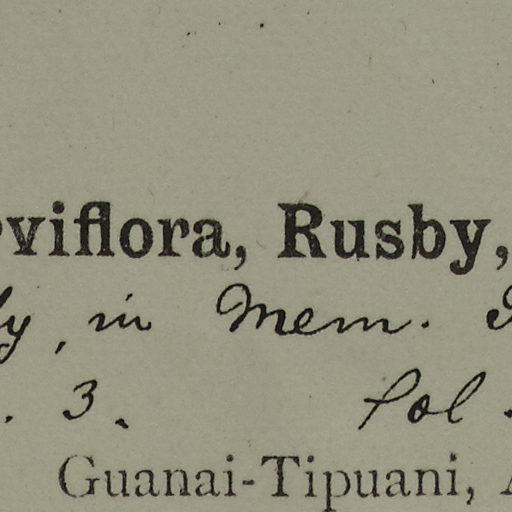 rviflora, Rusby,
y, in Mem.
. 3. Pol.
Guanai-Tipuani,